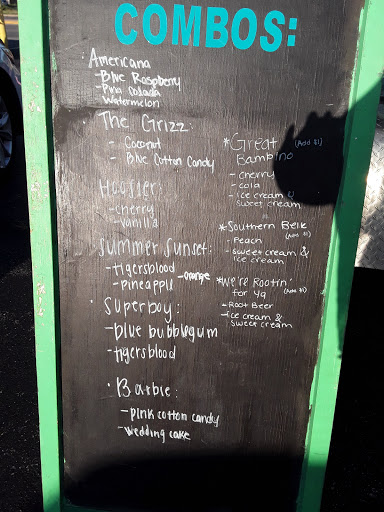 COMBOS:
Americana
-Blue Raspberry
-Pina Collada
Watermelon
The Grizz:
- Coconut
- Blue Cotton Candy
Hoosier:
-cherry
-vanilla
Summer Sunset:
-tigersblood -orange
-pineapple
Superboy:
-blue bubblegum
-tigersblood
Barbie:
-pink cotton candy
-wedding cake
*Great (Add $1)
Bambino
-cherry
-cola
-ice cream &
sweet cream
*Southern Belle
(Add $1)
-Peach
-sweet cream &
ice cream
*We're Rootin'
for ya (Add $1)
-Root Beer
-ice cream &
sweet cream